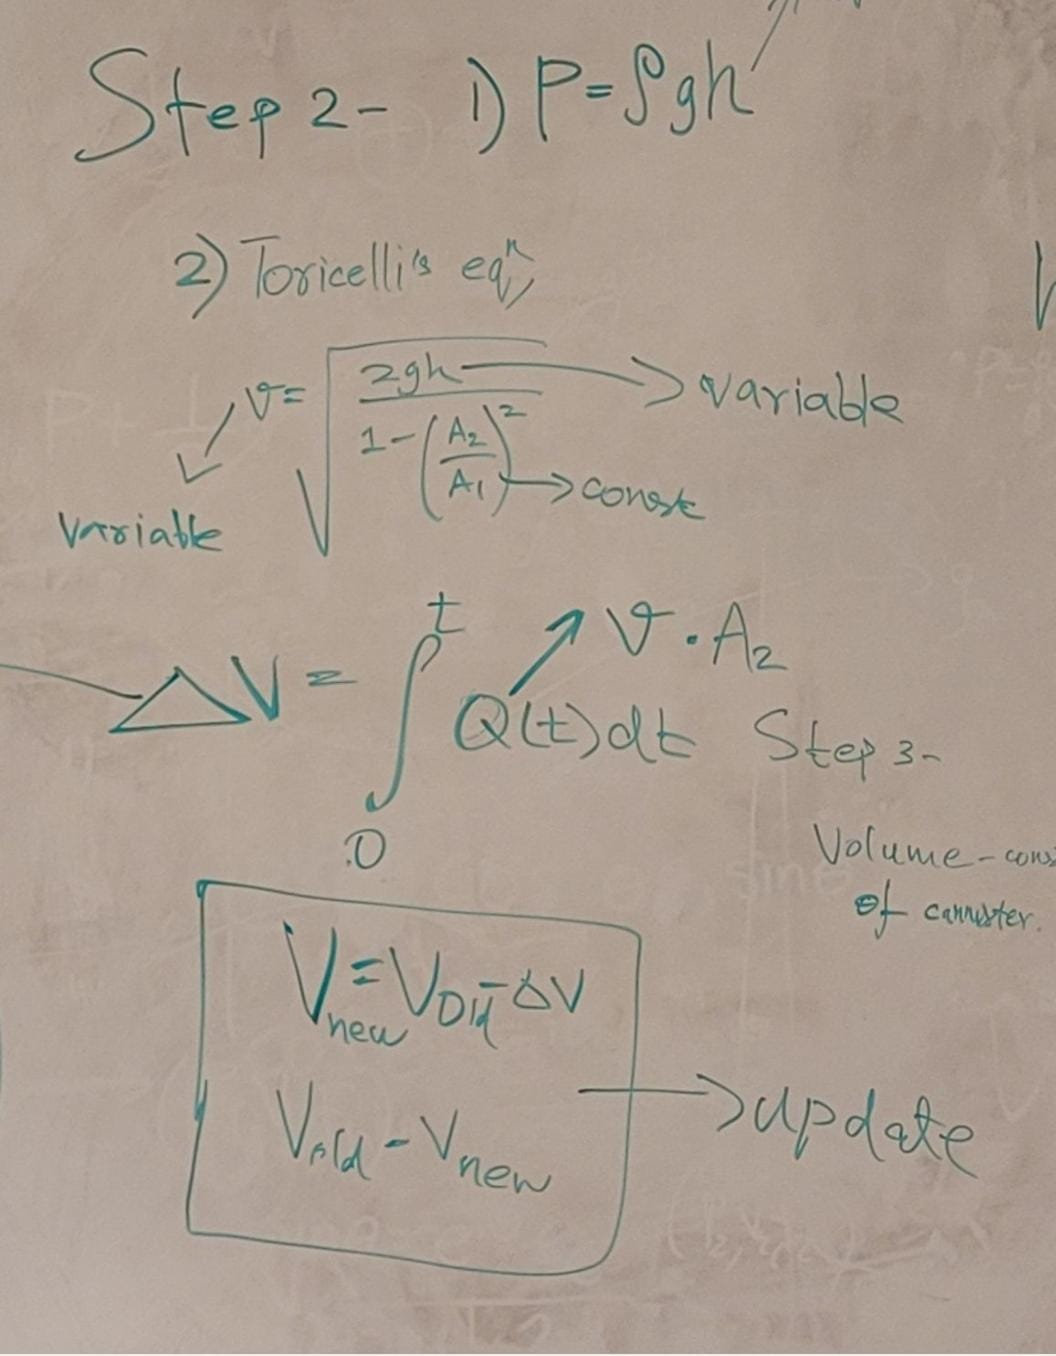 Step 2- 1) P=ρgh
2) Toricelli's eqⁿ,
v= √(2gh / (1-(A₂/A₁)²)) → variable
→ const
variable
ΔV = ∫₀ᵗ Q(t)dt
v.A₂
Step 3-
Volume-cons
of cannister.
V_new=V_Old-ΔV
V_old - V_new
→ update